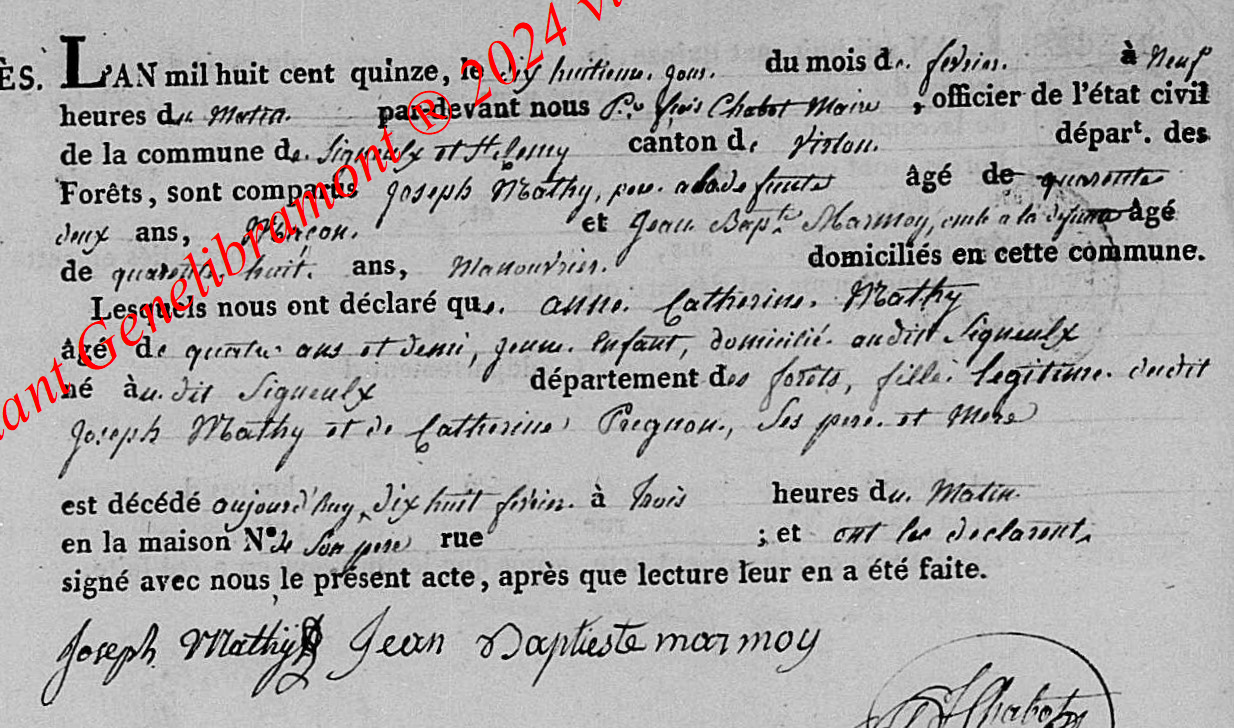 ÈS. L'AN mil huit cent quinze, le dix huitieme jour du mois de fevrier à neuf
heures du Matin par-devant nous Pre frçois Chabot Maire, officier de l'état civil
de la commune de Signeulx et St Remy canton de Virton départ. des
Forêts, sont comparus Joseph Mathy, pere a la defunte âgé de quarente
deux ans, Maçon. et Jean Bapte Marmoy, a la defunte âgé
de quarente huit ans, Manouvrier. domiciliés en cette commune.
Lesquels nous ont déclaré que anne Catherine Mathy
âgé de quatre ans et demi, jeune enfant, domicilié audit Signeulx
né àu dit Signeulx département des forets, fille legitime dudit
Joseph Mathy et de Catherine Pregnon, Ses pere et Mere
est décédé aujourd'huy dix huit fevrier à trois heures du Matin
en la maison N.º de Son pere rue ; et ont les declarents
signé avec nous le présent acte, après que lecture leur en a été faite.
Joseph Mathy Jean Baptieste marmoy
Chabot
Genelibramont ® 2024